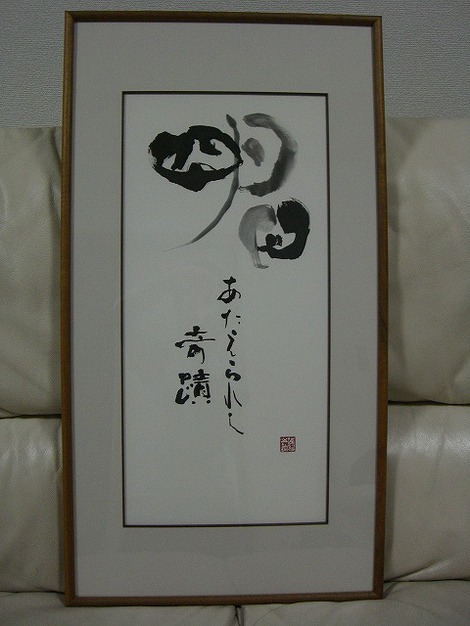 明日
あたえられし
奇蹟